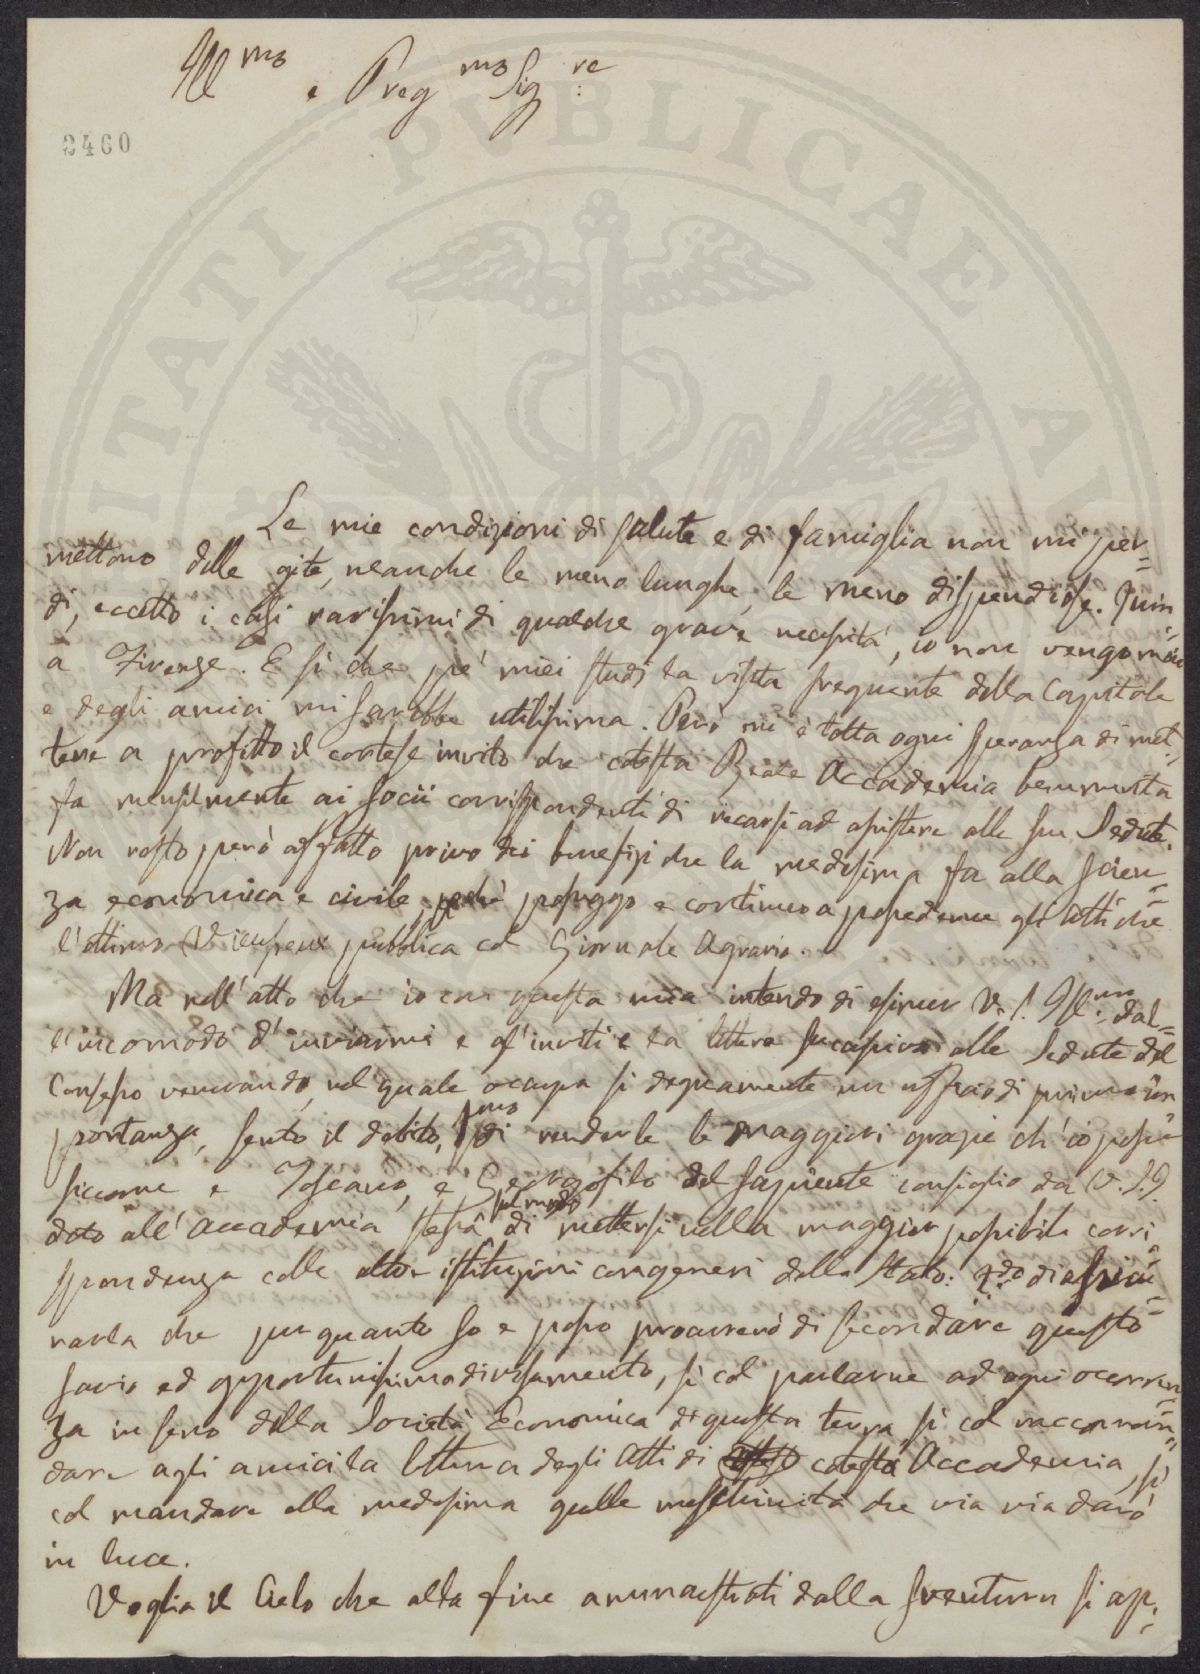 Ill.mo e Preg.mo Sig.re
2460
PVBLICAE
Le mie condizioni di salute e di famiglia non mi per=
mettono delle gite, neanche le meno lunghe, le meno dispendiose. Quin=
di, eccetto i casi rarissimi di qualche grave necessità, io non vengo mai
a Firenze. E sì che pe' miei studi la visita frequente della Capitale
e degli amici mi sarebbe utilissima. Però mi è tolta ogni speranza di met=
tere a profitto il cortese invito che cotesta Reale Accademia benemerita
fa mensilmente ai Socii corrispondenti di recarsi ad assistere alle sue Sedute.
Non resto però affatto privo dei benefizi che la medesima fa alla scien=
za economica e civile, perchè posseggo e continuo a possederne gli Atti che
l'ottimo Vieusseux pubblica col Giornale Agrario.
Ma nell'atto che io con questa mia intendo di esimer V. S. Ill.ma dal=
l'incomodo d'inviarmi e gl'inviti e la lettera alle Sedute del
Consesso venerando, nel quale occupa sì degnamente un uffizio di prima im
portanza, sento il debito, p.mo di renderle le maggiori grazie ch'io possa
siccome e Toscano, e Georgofilo del sapiente consiglio da V. S. I.
dato all'Accademia stessa di mettersi nella maggior possibile corri
spondenza colle altre istituzioni congeneri dello Stato: 2.do di assicu=
rarla che per quanto so e posso procurerò di secondare questo
savio ed opportunissimo divisamento, sì col parlarne ad ogni occorren
za in seno della Società Economica di questa terra, sì col raccoman=
dare agli amici la lettura degli Atti di cotesta Accademia, sì
col mandare alla medesima quelle meschinità che via via darò
in luce.
Voglia il Cielo che alla fine ammaestrati dalla sventura si ap=